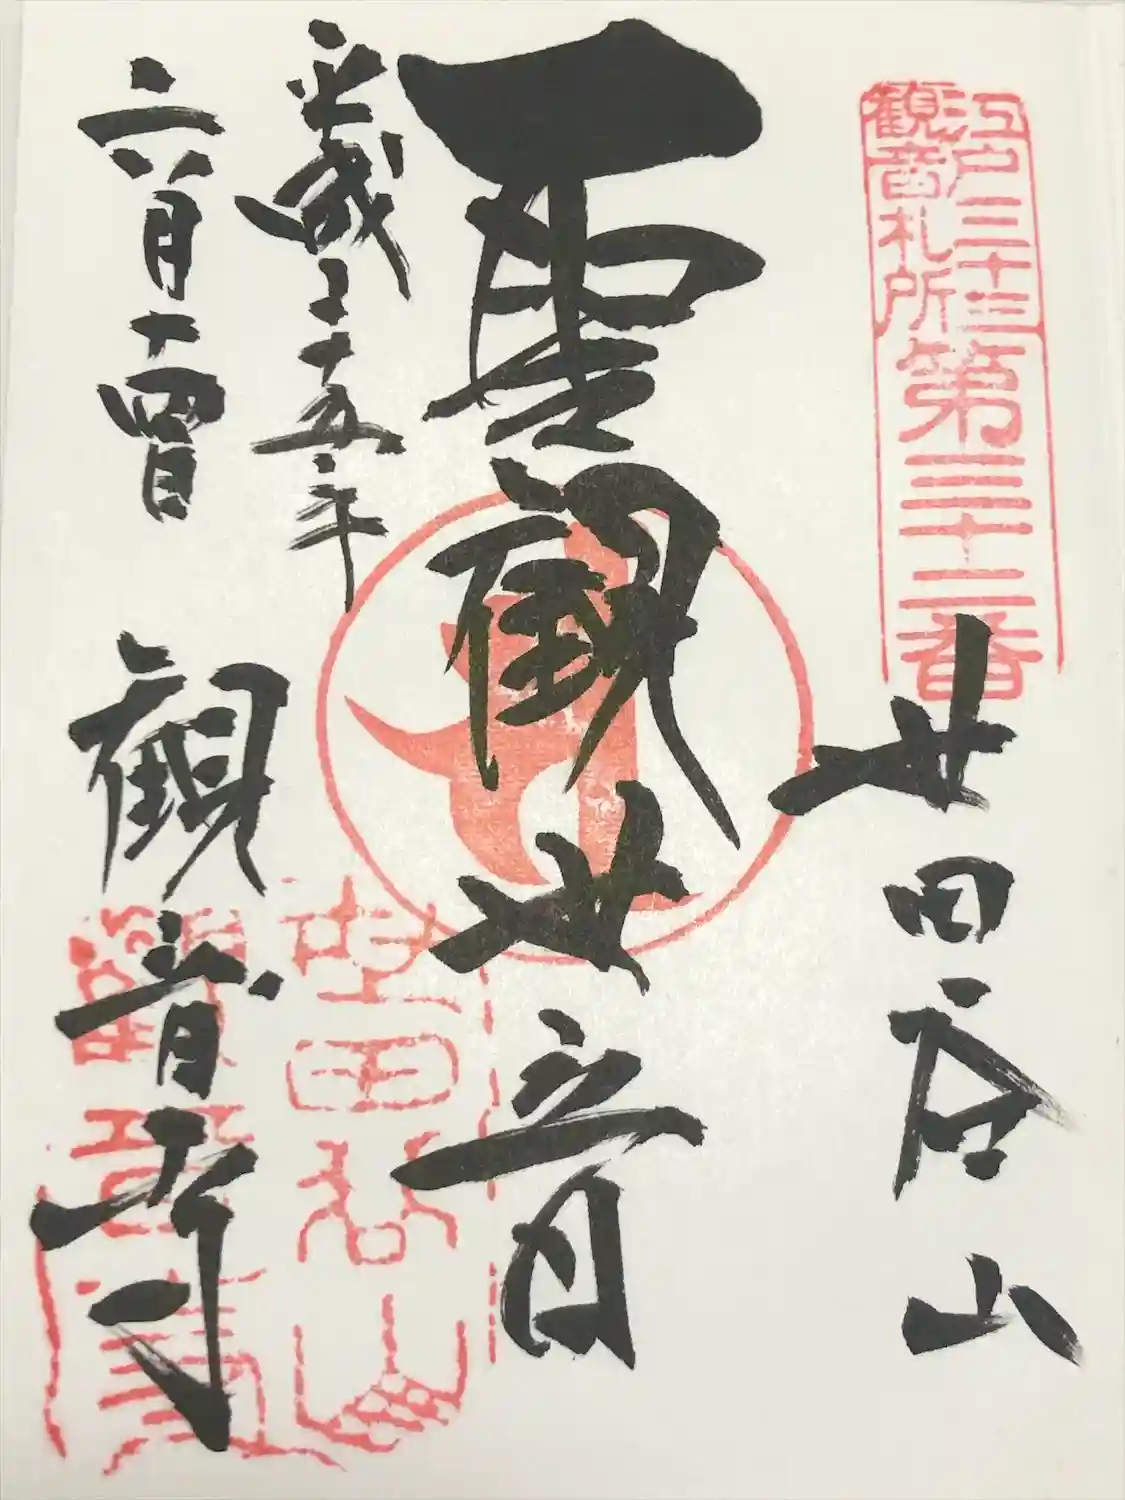 江戸三十三
観音札所
第三十二番
世田谷山
聖観世音
平成二十五年
六月十四日
観音寺
世田谷山